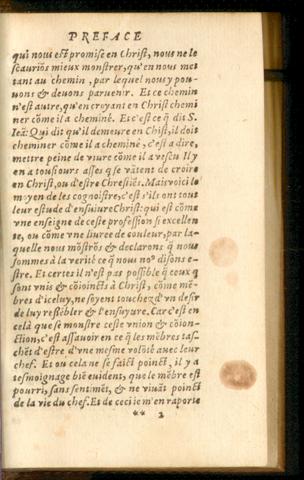 PREFACE
qui nous est promise en Christ, nous ne le
sçaurios mieux monstrer, qu'en nous met
tant au chemin, par lequel nous y pou-
uons & deuons paruenir. Et ce chemin
n'est autre, qu'en croyant en Christ chemi
ner cōme il a cheminé. Et c'est ce q̄ dit S.
Ieā: Qui dit qu'il demeure en Chist, il doit
cheminer cōme il a cheminé, c'est a dire,
mettre peine de viure cōme il a vescu Il y
en a tousiours asses q̄ se vātent de croire
en Christ, ou d'estre Chrestiēs. Mais voici le
moyen de les cognoistre, c'est s'ils ont tous
leur estude d'ensuiure Christ: qui est cōme
vne enseigne de ceste profession si excellen
te, ou cōme vne liuree de couleur, par la-
quelle nous mōstrōs & declarons q̄ nous
sommes à la verité ce q̄ nous no⁹ disons e-
stre. Et certes il n'est pas possible q̄ ceux q̄
sont vnis & cōioincts à Christ, cōme mē-
bres d'iceluy, ne soyent touchez d'vn desir
de luy ressēbler & l'ensuyure. Car c'est en
celà que se monstre ceste vnion & cōion-
ction, c'est assauoir en ce q̄ les mēbres tas-
chēt d'estre d'vne mesme volōté auec leur
chef. Et ou cela ne se faict poinct, il y a
tesmoignage biē euident, que le mēbre est
pourri, sans sentimēt, & ne viuāt poinct
de la vie du chef. Et de ceci ie m'en raporte
** 2